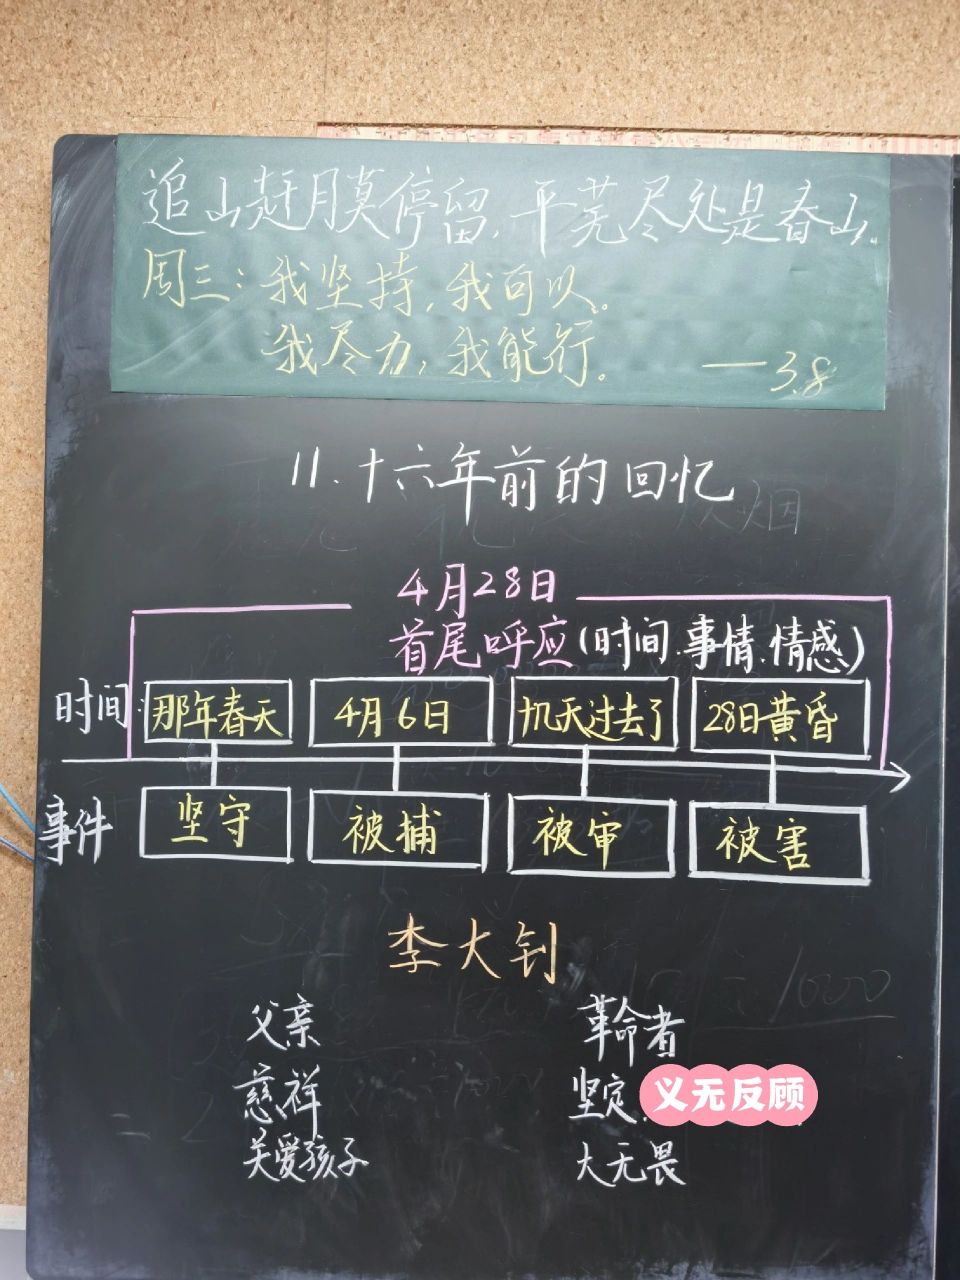 追山赶月莫停留，平芜尽处是春山。
周三：我坚持，我可以。
我尽力，我能行。 ——3.8
11.十六年前的回忆
4月28日
首尾呼应(时间.事情.情感)
时间 那年春天 4月6日 十几天过去了 28日黄昏
事件 坚守 被捕 被审 被害
李大钊
父亲 革命者
慈祥 坚定.义无反顾
关爱孩子 大无畏